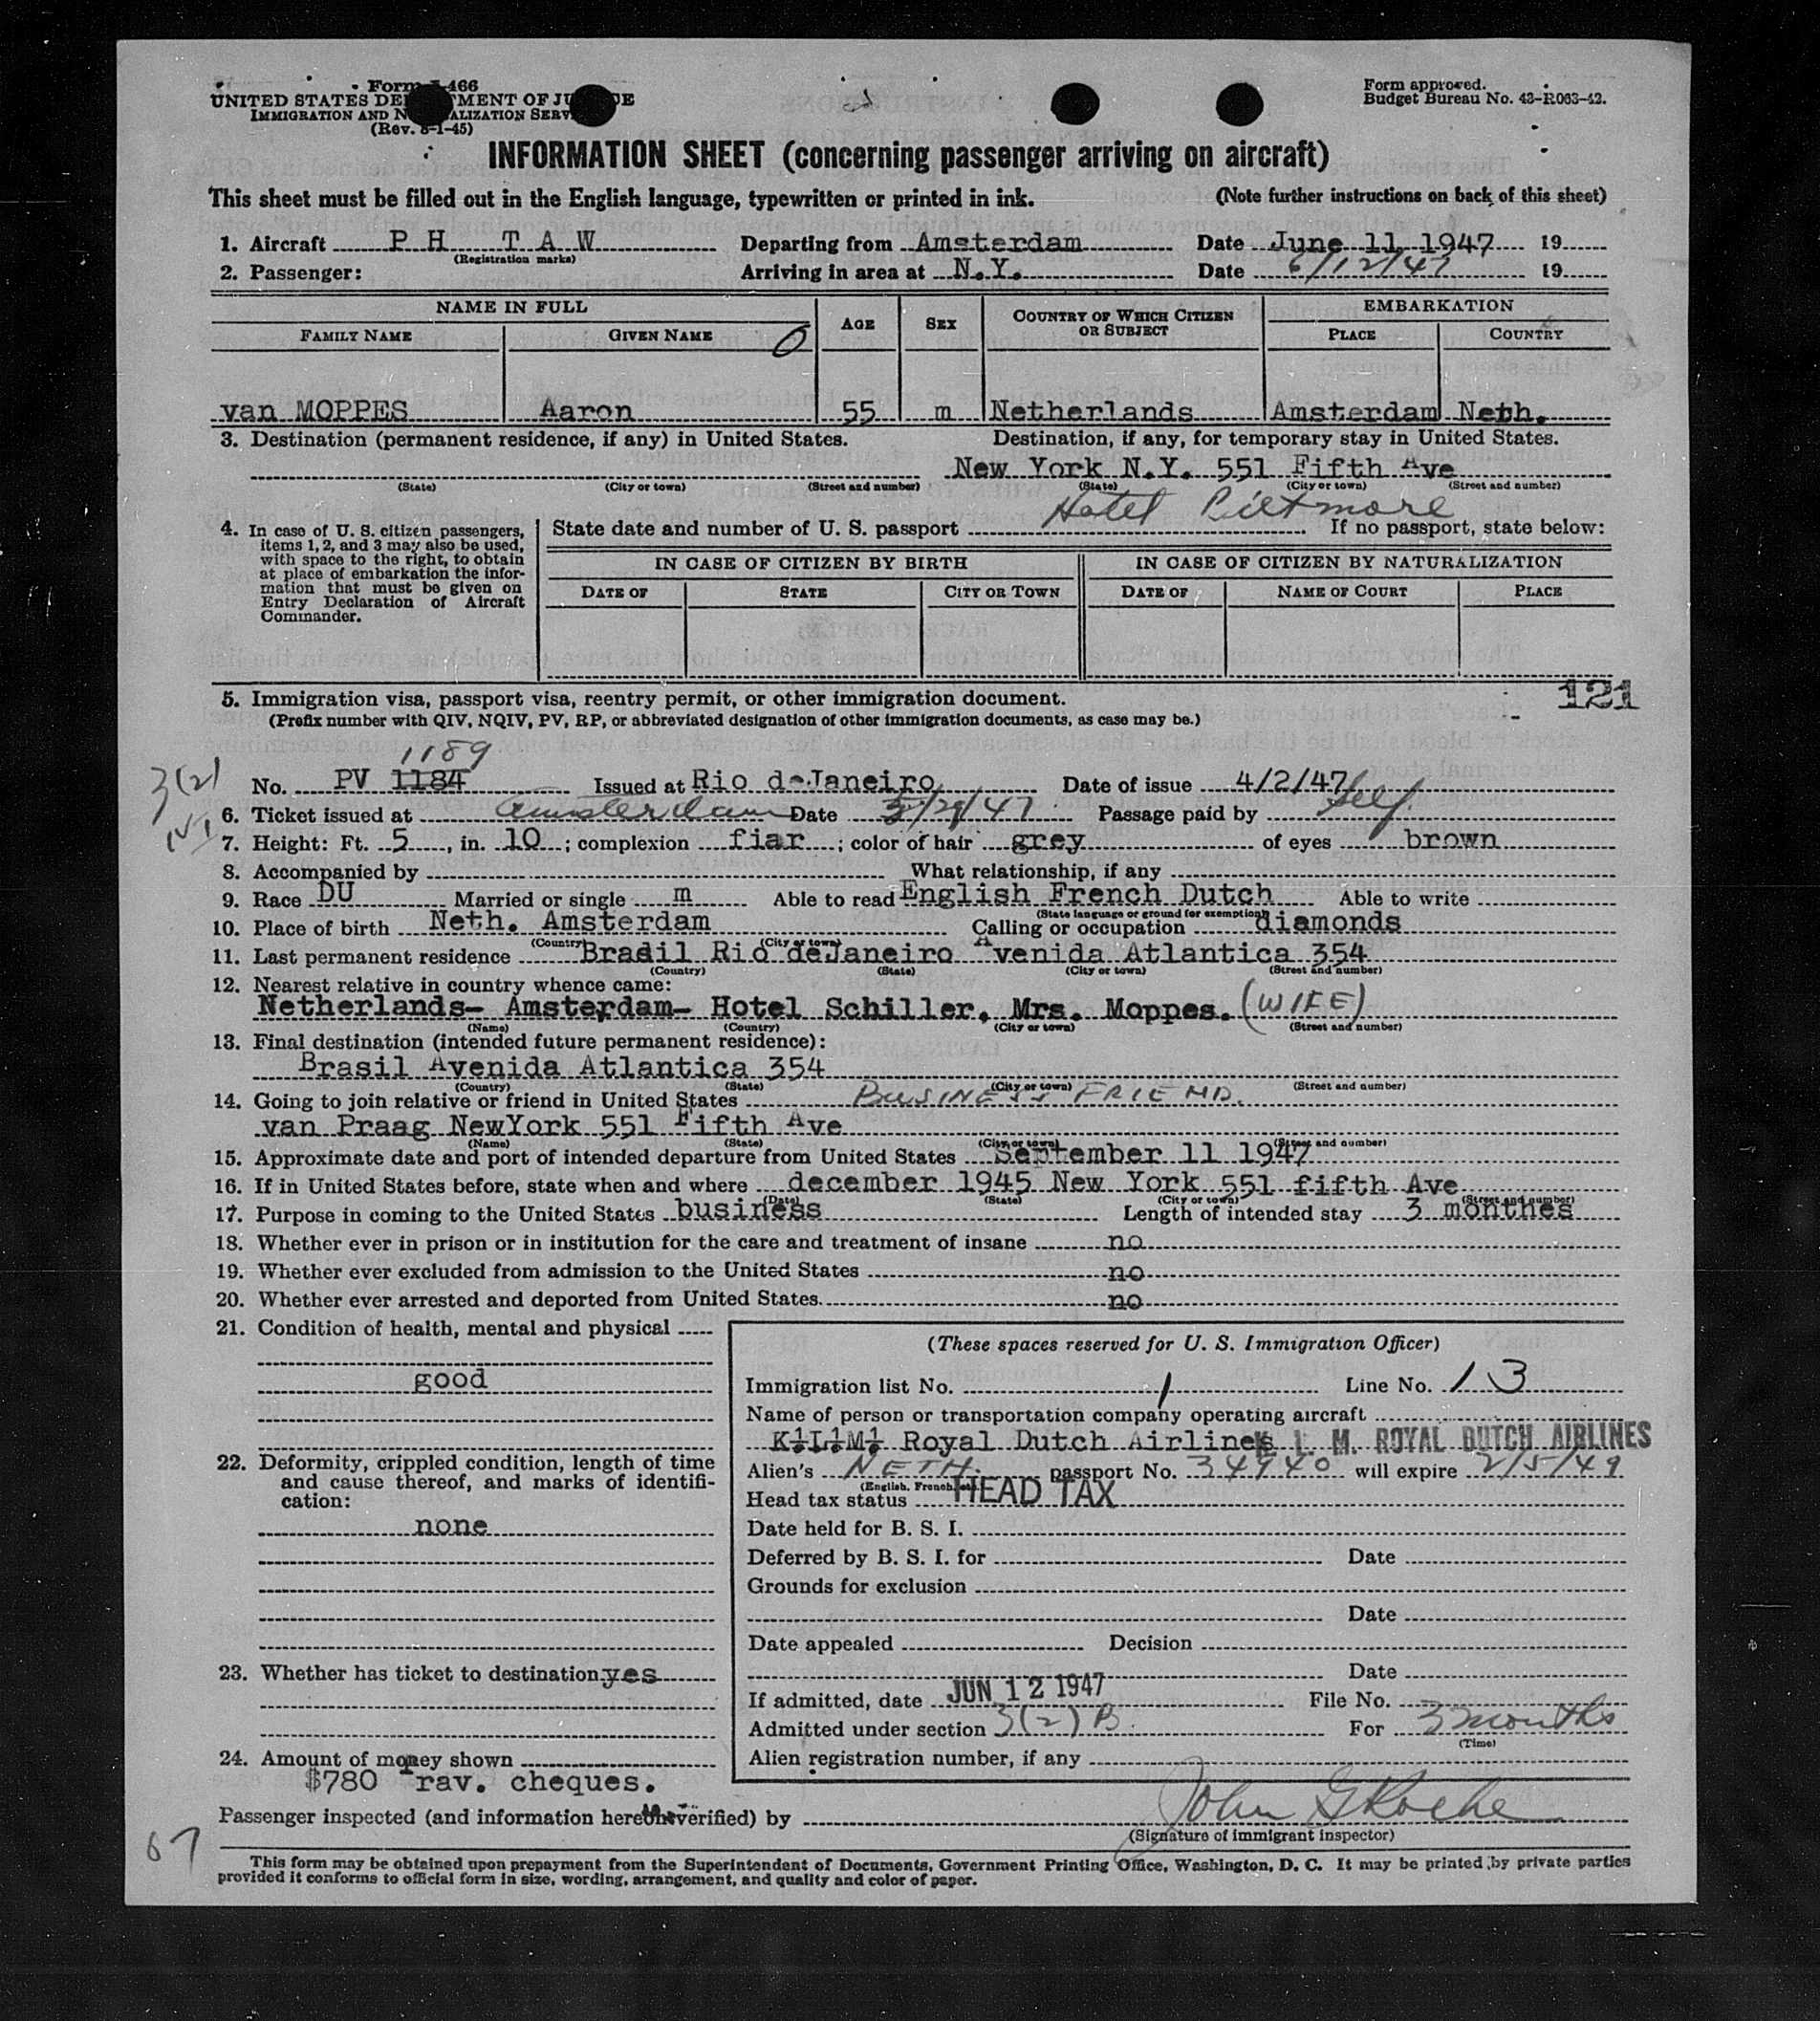 Form I-466
UNITED STATES DEPARTMENT OF JUSTICE
IMMIGRATION AND NATURALIZATION SERVICE
(Rev. 8-1-45)
Form approved.
Budget Bureau No. 43-R063-42.
INFORMATION SHEET (concerning passenger arriving on aircraft)
This sheet must be filled out in the English language, typewritten or printed in ink. (Note further instructions on back of this sheet)
1. Aircraft P H T A W Departing from Amsterdam Date June 11 1947 19
(Registration marks)
2. Passenger: Arriving in area at N.Y. Date 6/12/47 19
NAME IN FULL AGE SEX COUNTRY OF WHICH CITIZEN OR SUBJECT EMBARKATION
FAMILY NAME GIVEN NAME PLACE COUNTRY
van MOPPES Aaron 55 m Netherlands Amsterdam Neth.
3. Destination (permanent residence, if any) in United States. Destination, if any, for temporary stay in United States.
New York N.Y. 551 Fifth Ave
(State) (City or town) (Street and number) (State) (City or town) (Street and number)
Hotel Biltmore
4. In case of U. S. citizen passengers, items 1, 2, and 3 may also be used, with space to the right, to obtain at place of embarkation the information that must be given on Entry Declaration of Aircraft Commander.
State date and number of U. S. passport If no passport, state below:
IN CASE OF CITIZEN BY BIRTH IN CASE OF CITIZEN BY NATURALIZATION
DATE OF STATE CITY OR TOWN DATE OF NAME OF COURT PLACE
121
5. Immigration visa, passport visa, reentry permit, or other immigration document.
(Prefix number with QIV, NQIV, PV, RP, or abbreviated designation of other immigration documents, as case may be.)
1189
3(2)
No. PV 1184 Issued at Rio deJaneiro Date of issue 4/2/47
6. Ticket issued at Amsterdam Date 5/29/47 Passage paid by Self
7. Height: Ft. 5, in. 10; complexion fiar; color of hair grey of eyes brown
8. Accompanied by What relationship, if any
9. Race DU Married or single m Able to read English French Dutch Able to write
(State language or ground for exemption)
10. Place of birth Neth. Amsterdam Calling or occupation diamonds
(Country) (City or town)
11. Last permanent residence Brasil Rio deJaneiro Avenida Atlantica 354
(Country) (State) (City or town) (Street and number)
12. Nearest relative in country whence came:
Netherlands- Amsterdam- Hotel Schiller, Mrs. Moppes. (WIFE)
(Name) (Country) (City or town) (Street and number)
13. Final destination (intended future permanent residence):
Brasil Avenida Atlantica 354
(Country) (State) (City or town) (Street and number)
14. Going to join relative or friend in United States BUSINESS FRIEND.
van Praag NewYork 551 Fifth Ave
(Name) (State) (City or town) (Street and number)
15. Approximate date and port of intended departure from United States September 11 1947
16. If in United States before, state when and where december 1945 New York 551 fifth Ave
(Date) (State) (City or town) (Street and number)
17. Purpose in coming to the United States business Length of intended stay 3 monthes
18. Whether ever in prison or in institution for the care and treatment of insane no
19. Whether ever excluded from admission to the United States no
20. Whether ever arrested and deported from United States. no
21. Condition of health, mental and physical
good
22. Deformity, crippled condition, length of time and cause thereof, and marks of identification:
none
23. Whether has ticket to destination yes
24. Amount of money shown
$780 Trav. cheques.
(These spaces reserved for U. S. Immigration Officer)
Immigration list No. 1 Line No. 13
Name of person or transportation company operating aircraft
K.L.M. Royal Dutch Airlines K. L. M. ROYAL DUTCH AIRLINES
Alien's NETH. passport No. 34940 will expire 2/5/49
(English, French, etc.)
Head tax status HEAD TAX
Date held for B. S. I.
Deferred by B. S. I. for Date
Grounds for exclusion
Date
Date appealed Decision
Date
If admitted, date JUN 12 1947 File No.
Admitted under section 3(2) B. For 3 months
(Time)
Alien registration number, if any
Passenger inspected (and information hereon verified) by John G Roche
(Signature of immigrant inspector)
67
This form may be obtained upon prepayment from the Superintendent of Documents, Government Printing Office, Washington, D. C. It may be printed by private parties
provided it conforms to official form in size, wording, arrangement, and quality and color of paper.